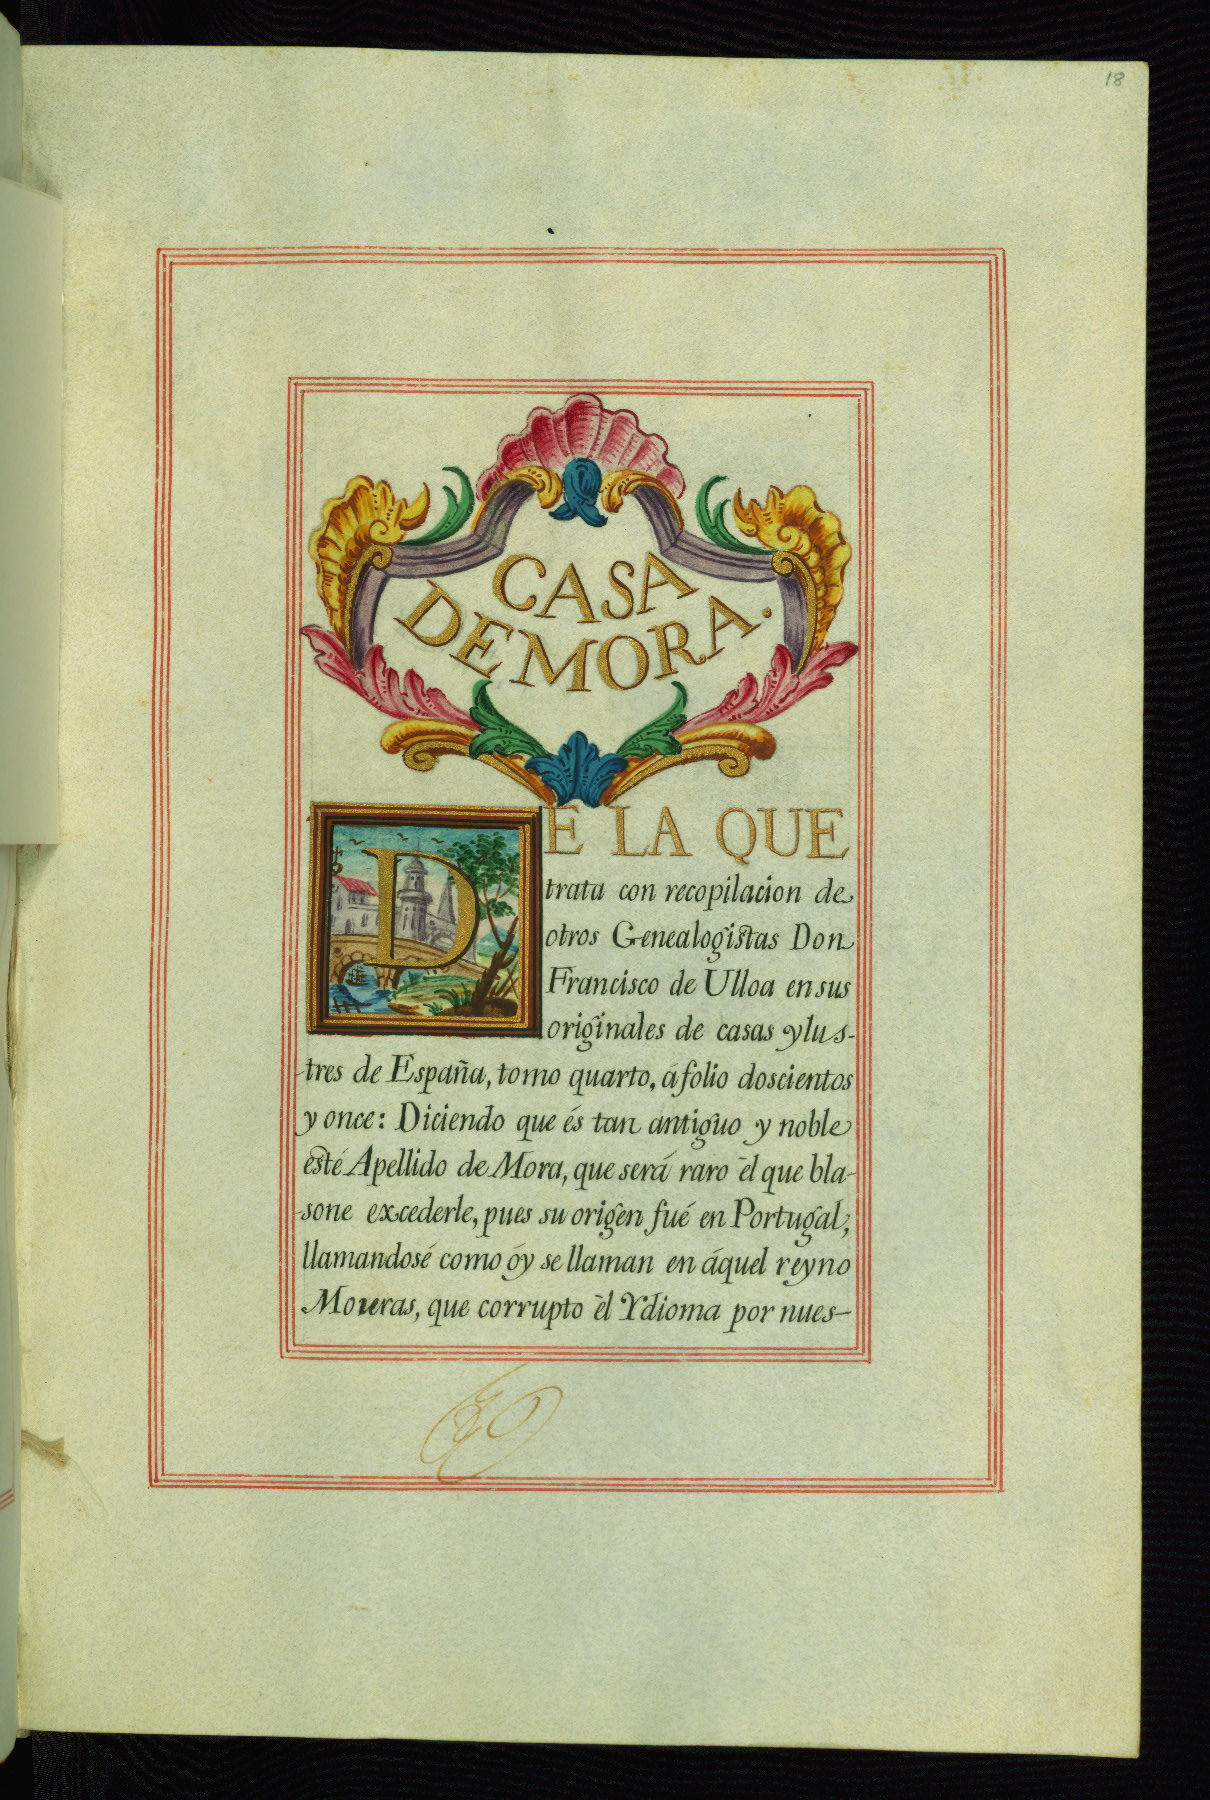 18
CASA
DE MORA.
DE LA QUE
trata con recopilacion de
otros Genealogistas Don
Francisco de Ulloa en sus
originales de casas ylus-
tres de España, tomo quarto, á folio doscientos
y once: Diciendo que és tan antiguo y noble
esté Apellido de Mora, que será raro èl que bla-
sone excederle, pues su origen fué en Portugal,
llamandosé como óy se llaman en áquel reyno
Moreras, que corrupto èl Ydioma por nues-